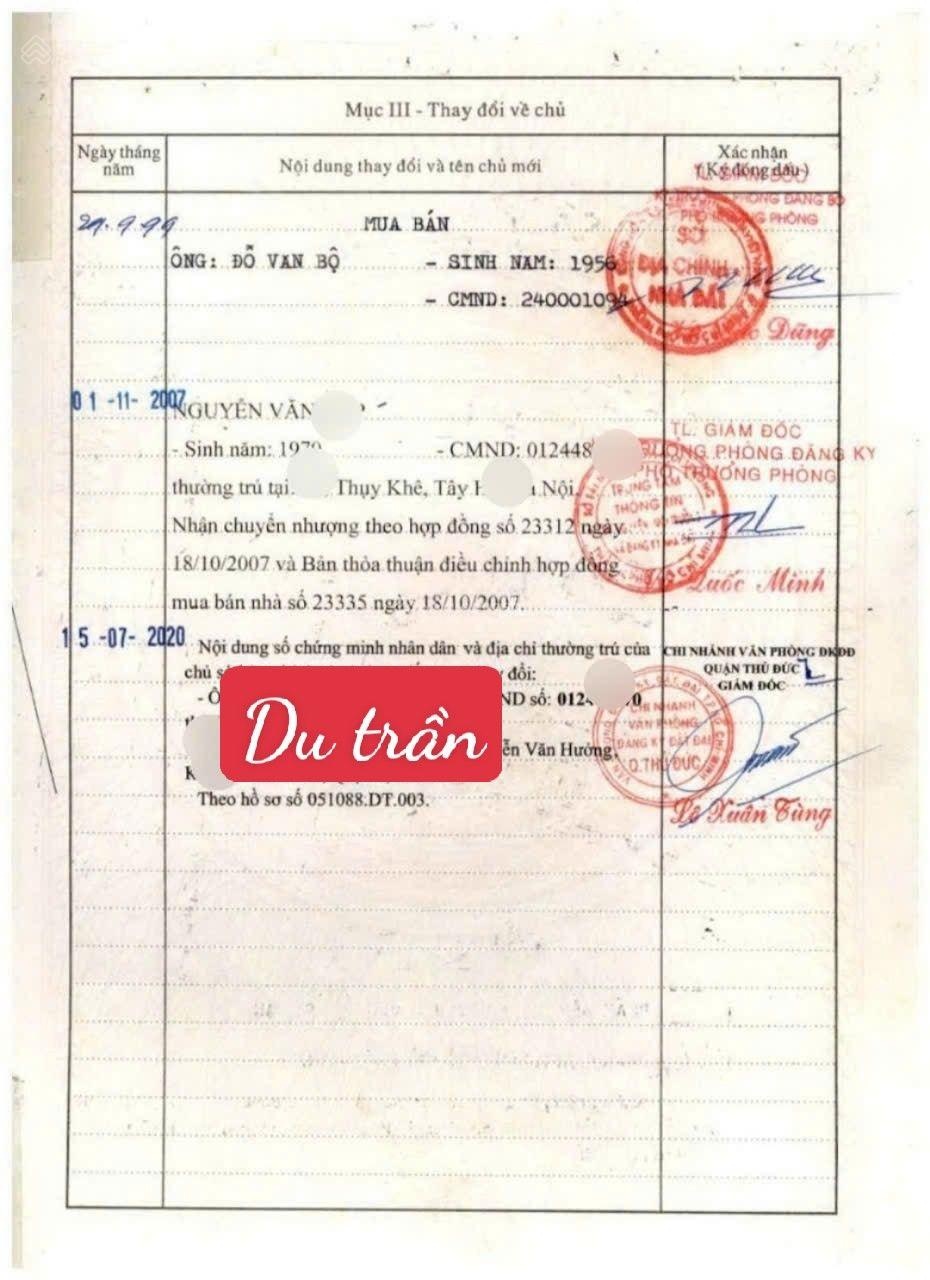 Mục III - Thay đổi về chủ
Ngày tháng năm
Nội dung thay đổi và tên chủ mới
Xác nhận
(Ký đóng dấu)
TL. GIÁM ĐỐC
PHÒNG ĐĂNG
PHÒNG
29.9.99
MUA BÁN
ÔNG: ĐỖ VAN BỘ - SINH NAM: 1956
- CMND: 240001094
SỞ
ĐỊA CHÍNH
NHÀ ĐẤT
Dũng
01 -11- 2007
NGUYỄN VĂN
- Sinh năm: 197 - CMND: 012448
thường trú tại Thụy Khê, Tây Nội.
Nhận chuyển nhượng theo hợp đồng số 23312 ngày
18/10/2007 và Bản thỏa thuận điều chỉnh hợp đồng
mua bán nhà số 23335 ngày 18/10/2007.
TL. GIÁM ĐỐC
PHÒNG ĐĂNG KÝ
PHÓ TRƯỞNG PHÒNG
TRUNG TÂM
THÔNG TIN
Quốc Minh
15 -07- 2020
Nội dung số chứng minh nhân dân và địa chỉ thường trú của
chủ đổi:
số: 012
Văn Hưởng,
Theo hồ sơ số 051088.DT.003.
Du trần
CHI NHÁNH VĂN PHÒNG ĐKĐĐ
QUẬN THỦ ĐỨC
GIÁM ĐỐC
CHI NHÁNH
VĂN PHÒNG
ĐĂNG KÝ ĐẤT ĐAI
Q.THỦ ĐỨC
Lê Xuân Tùng